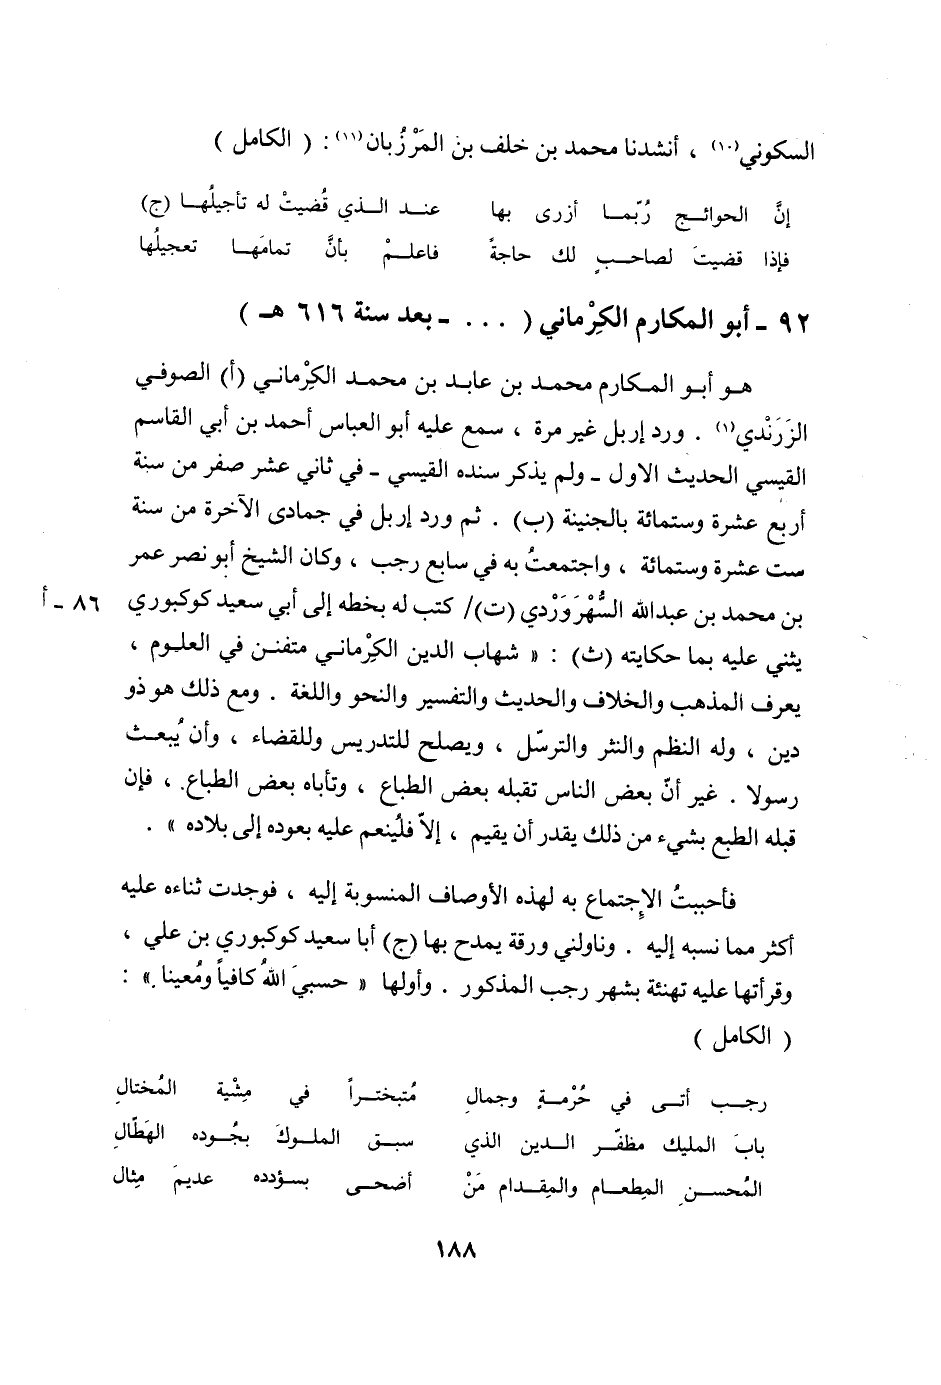 السكوني(١٠) ، أنشدنا محمد بن خلف بن المَرْزُبان(١١) : ( الكامل )
إنَّ الحوائـج رُبّمـا أزرى بها عنـد الـذي قُضيتْ له تأجيلُهـا (ج)
فإذا قضيتَ لصاحـبٍ لك حاجةً فاعلـمْ بأنَّ تمامَهـا تعجيلُها
٩٢ - أبو المكارم الكِرْماني ( ... - بعد سنة ٦١٦ هـ )
هـو أبـو المـكارم محمـد بن عابـد بن محمـد الكِرْمانـي (أ) الصوفـي
الزَرَنْدي(١) . ورد إربل غير مرة ، سمع عليه أبو العباس أحمد بن أبي القاسم
القيسي الحديث الاول - ولم يذكر سنده القيسي - في ثاني عشر صفر من سنة
أربع عشرة وستمائة بالجنينة (ب) . ثم ورد إربل في جمادى الآخرة من سنة
ست عشرة وستمائة ، واجتمعتُ به في سابع رجب ، وكان الشيخ أبو نصر عمر
بن محمد بن عبدالله السُّهْرَوَرْدي (ت)/ كتب له بخطه إلى أبي سعيد كوكبوري ٨٦ - أ
يثني عليه بما حكايته (ث) : « شهاب الدين الكِرْمانـي متفنـن في العلـوم ،
يعرف المذهب والخلاف والحديث والتفسير والنحو واللغة . ومع ذلك هو ذو
دين ، وله النظم والنثر والترسّل ، ويصلح للتدريس وللقضاء ، وأن يُبعـث
رسولا . غير أنّ بعض الناس تقبله بعض الطباع ، وتأباه بعض الطباع. ، فإن
قبله الطبع بشيء من ذلك يقدر أن يقيم ، إلاّ فلْيُنعم عليه بعوده إلى بلاده » .
فأحببتُ الإجتماع به لهذه الأوصاف المنسوبة إليه ، فوجدت ثناءه عليه
أكثر مما نسبه إليه . وناولني ورقة يمدح بها (ج) أبا سعيد كوكبوري بن علي ،
وقرأتها عليه تهنئة بشهر رجب المذكور . وأولها « حسبيَ اللهُ كافياً ومُعينا » :
( الكامل )
رجـب أتـى في حُرْمـةٍ وجمالِ مُتبختـراً في مِشْية المُختالِ
بابَ المليك مظفّـر الـدين الذي سبـق الملـوكَ بجُـوده الهَطّالِ
المُحسـنِ المِطعـام والمِقـدام مَنْ أضحـى بسـؤدده عديمَ مِثال
١٨٨